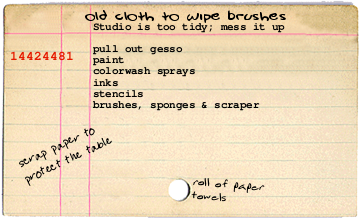 old cloth to wipe brushes
Studio is too tidy; mess it up
14424481
pull out gesso
paint
colorwash sprays
inks
stencils
brushes, sponges & scraper
scrap paper to
protect the table
roll of paper
towels